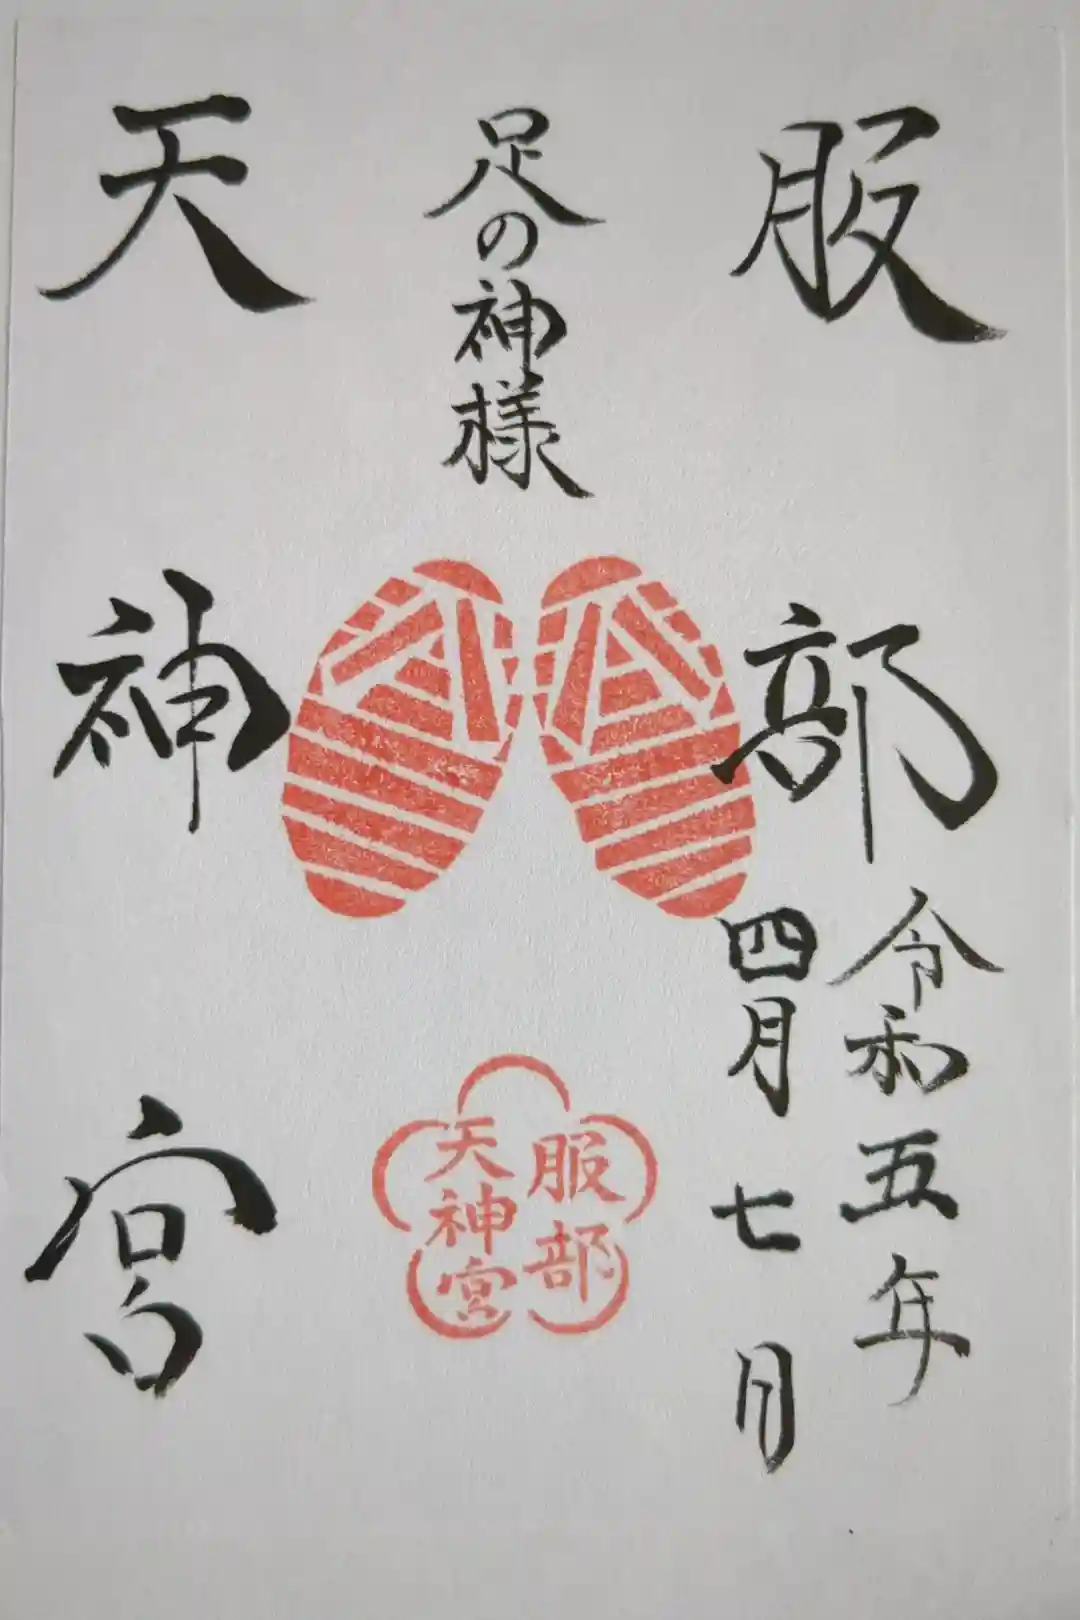 服部
令和五年
四月七日
足の神様
服部
天神宮
天神宮